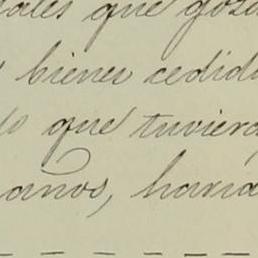 ales que goza
bienes cedid
que tuviera
anos, haria